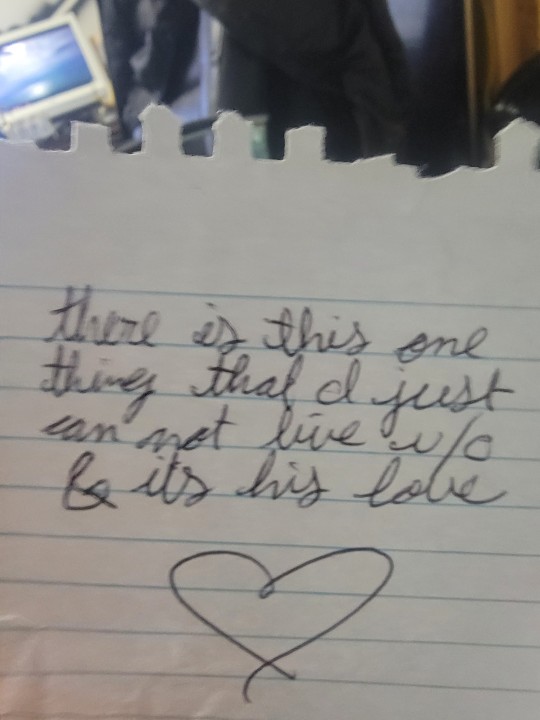 there is this one
thing that I just
can not live w/o
& its his love